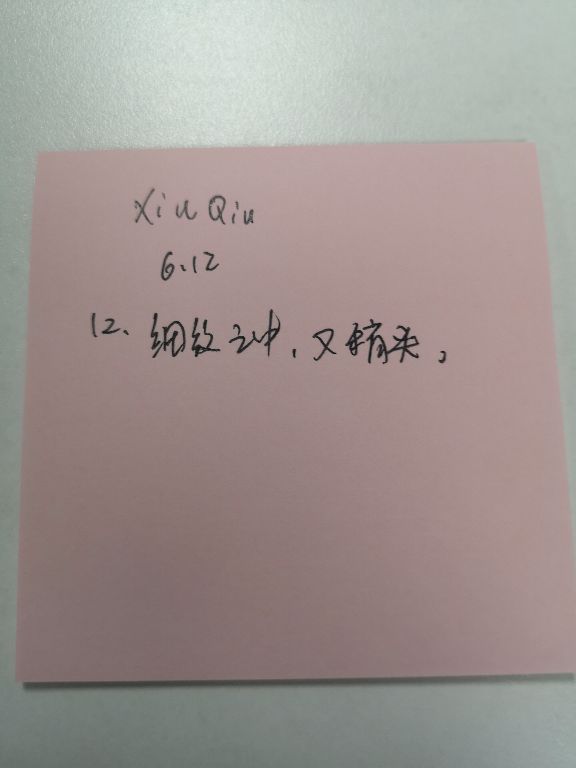 Xiu Qiu
6.12
12. 细纹之中,又有头,